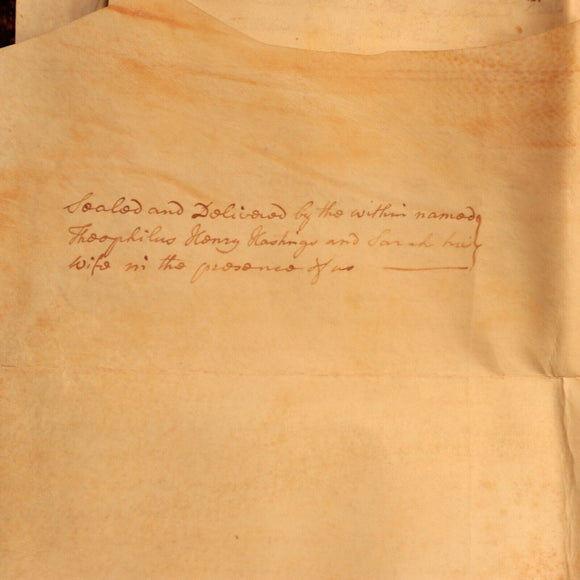 Sealed and Delivered by the within named
Theophilus Henry Hastings and Sarah his
Wife in the presence of us